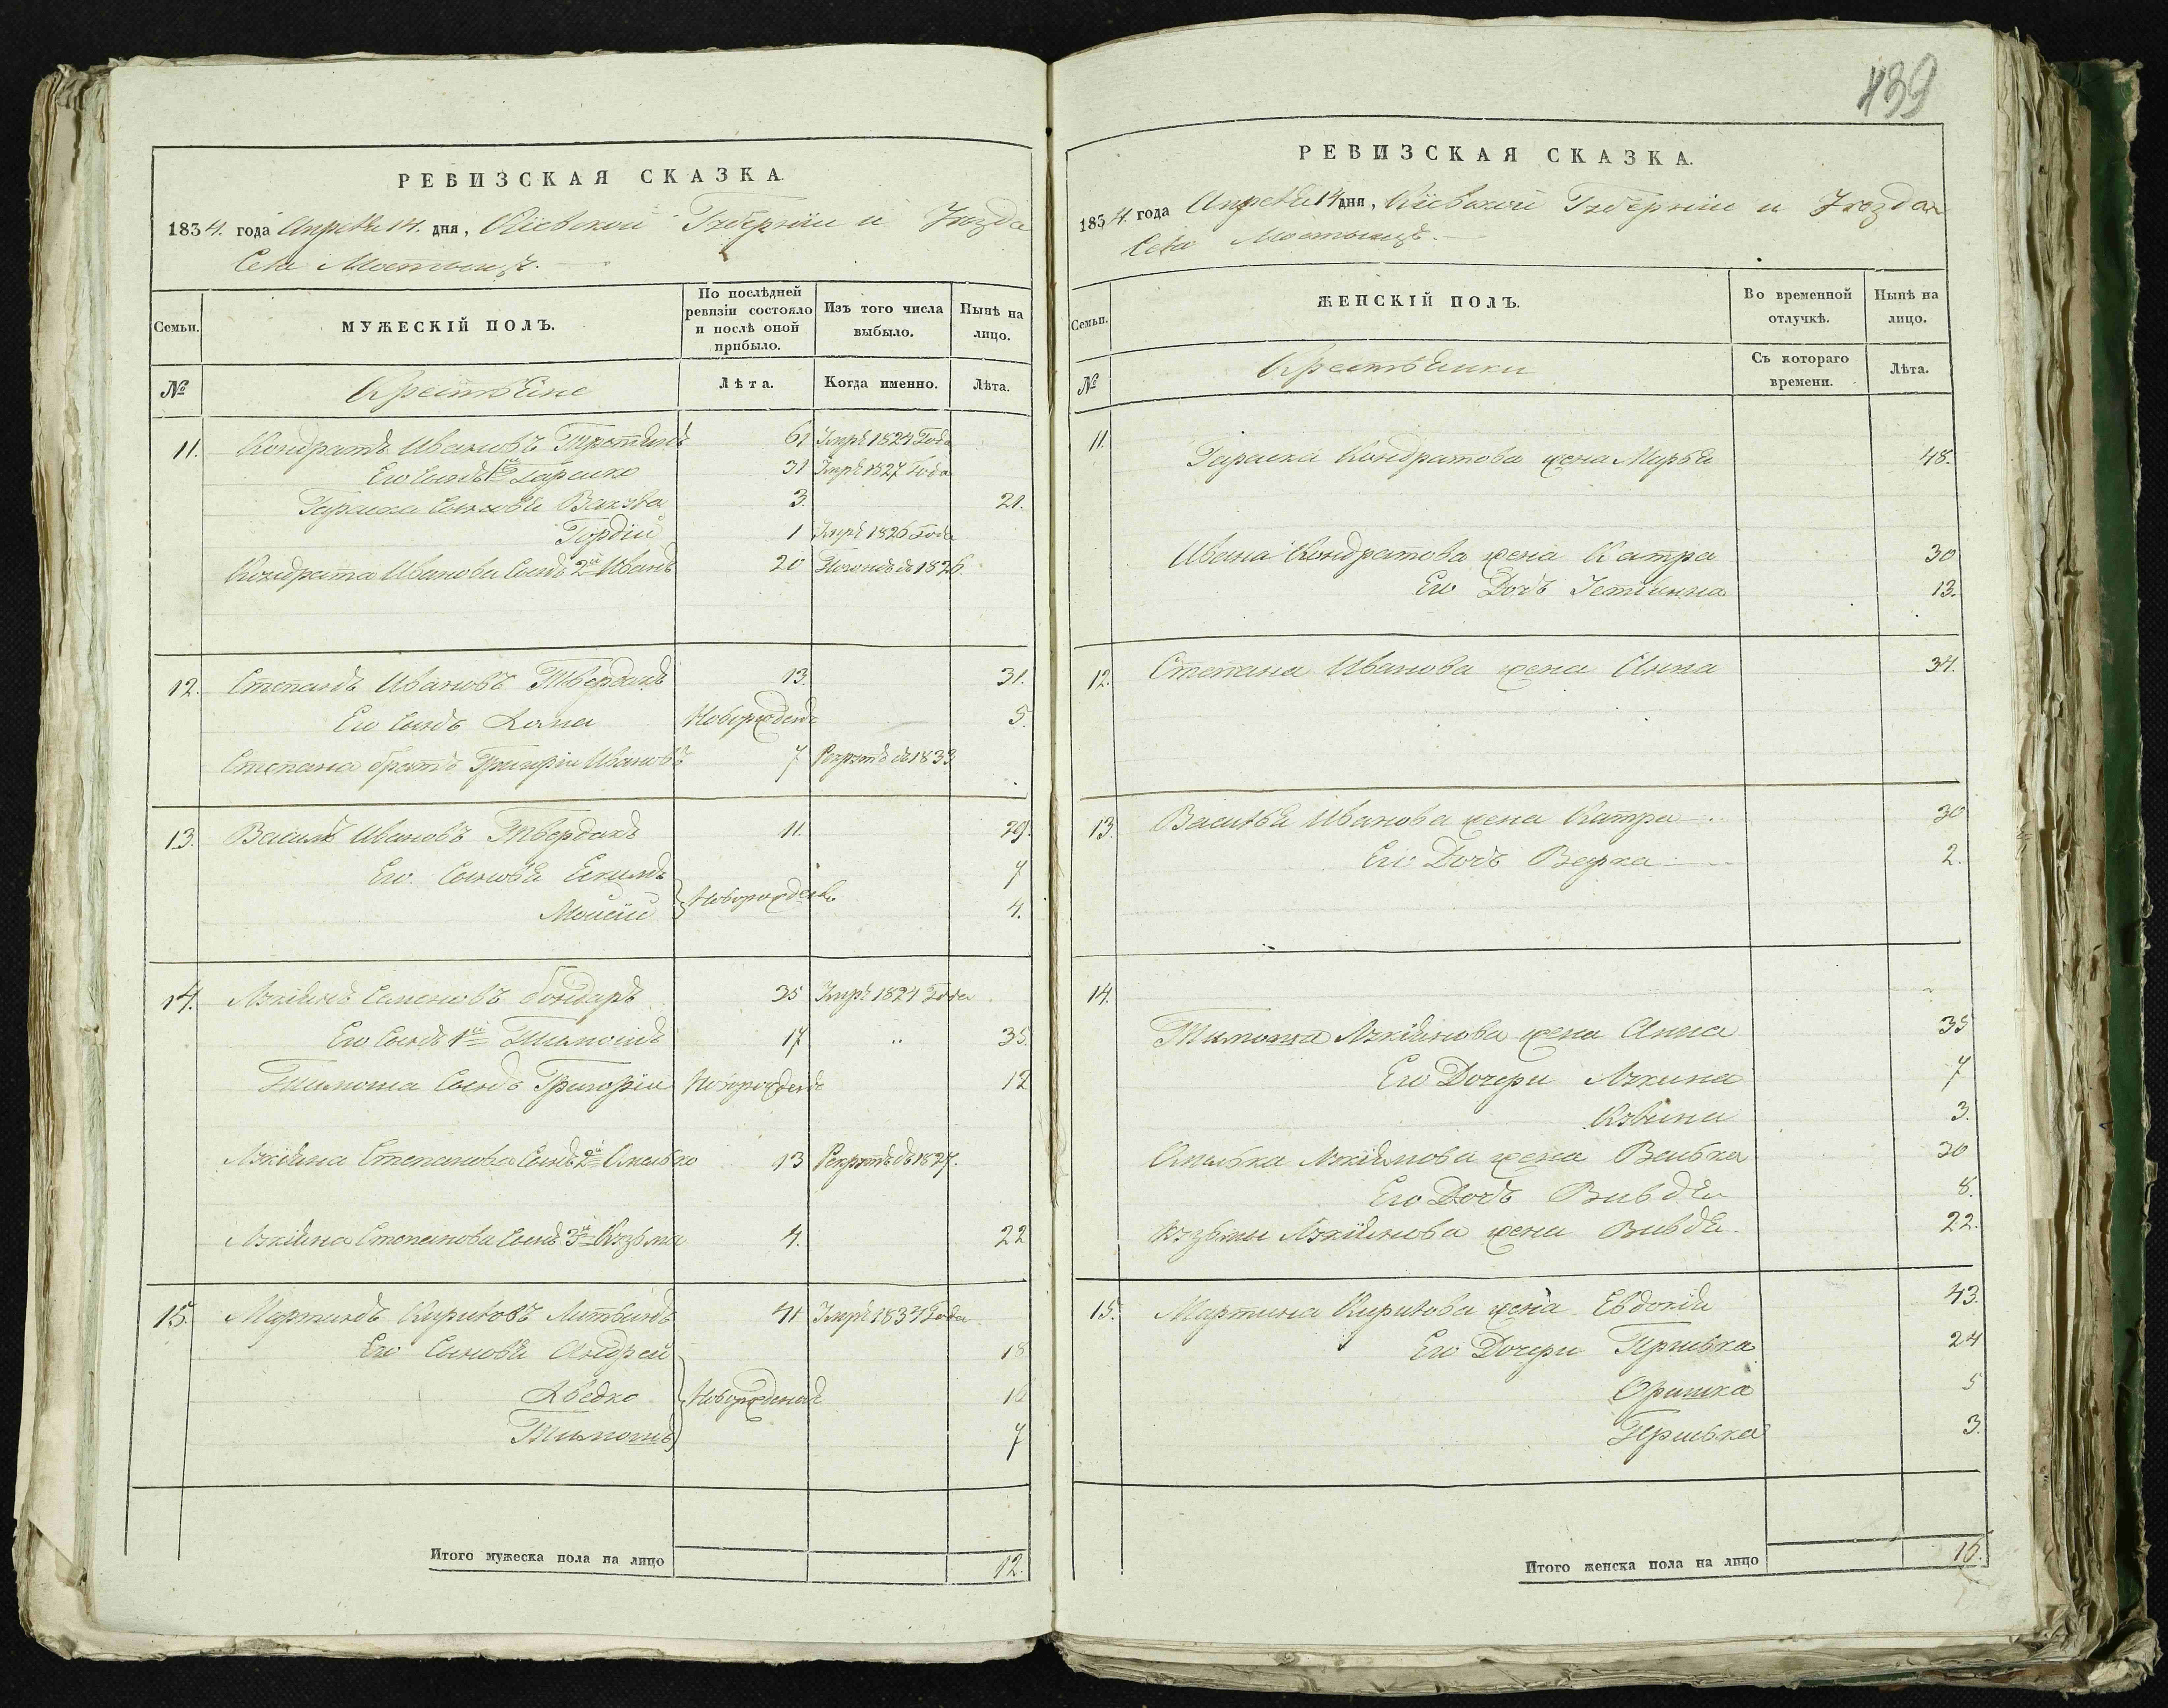 РЕВИЗСКАЯ СКАЗКА.
1834. года Апреля 14. дня, Кіевской Губерніи и Уезда
Села Мостыщъ.
Семьи.
МУЖЕСКІЙ ПОЛЪ.
По послѣдней ревизіи состояло и послѣ оной прибыло.
Изъ того числа выбыло.
Нынѣ на лицо.
№
Крестьяне
Лѣта.
Когда именно.
Лѣта.
11. Кондратъ Ивановъ 61 Умръ 1824 Года
Его Сынъ 1й Гараско 31 Умръ 1827 Года
Гараска Сыновья Вакула 3. 21.
Гордій 1 Умръ 1826 Года
Кондрата Иванова Сынъ 2й Иванъ 20 1826.
12. Степанъ Ивановъ Твердакъ 13. 31.
Его Сынъ Хома Новорожденъ 5.
Степана братъ Григорій Ивановъ 7 Рекрутъ съ 1833
13. Василь Ивановъ Твердакъ 11. 29.
Его Сыновья Екимъ 7
Мойсій } Новорожден. 4.
14. Лукіянъ Семеновъ бондарь 35 Умръ 1824 Года
Его Сынъ 1й Тимошъ 17 " 35.
Тимоша Сынъ Григорій Новорожденъ 12
Лукіяна Степанова Сынъ 2й Омелько 13 Рекрутъ съ 1827.
Лукіяна Степанова Сынъ 3й Кузьма 4. 22
15. Мартинъ Кириловъ Литвинъ 41 Умръ 1834 Года
Его Сыновья Андрей 18
Хведко } Новорожденъ 16
Тимошъ 7
Итого мужеска пола на лицо 12.
439
РЕВИЗСКАЯ СКАЗКА.
1834. года Апреля 14 дня, Кіевской Губерніи и Уезда
Села Мостыщъ.
Семьи.
ЖЕНСКІЙ ПОЛЪ.
Во временной отлучкѣ.
Нынѣ на лицо.
№
Крестьянки
Съ котораго времени.
Лѣта.
11. Гараска Кондратова жена Марья 48.
Ивана Кондратова жена Катра 30
Его Дочь Устіянна 13.
12. Степана Иванова жена Анна 34.
13. Василья Иванова жена Катра 30
Его Дочь 2.
14.
Тимоша Лукіянова жена Анна 35
Его Дочери Лукина 7
3.
Омелька Лукіянова жена Васька 30
Его Дочь Вивдя 8.
Кузьмы Лукіянова жена Вивдя. 22.
15. Мартина Кирилова жена Евдокія 43.
Его Дочери Приська 24
Оришка 5
Приська 3.
Итого женска пола на лицо 16.